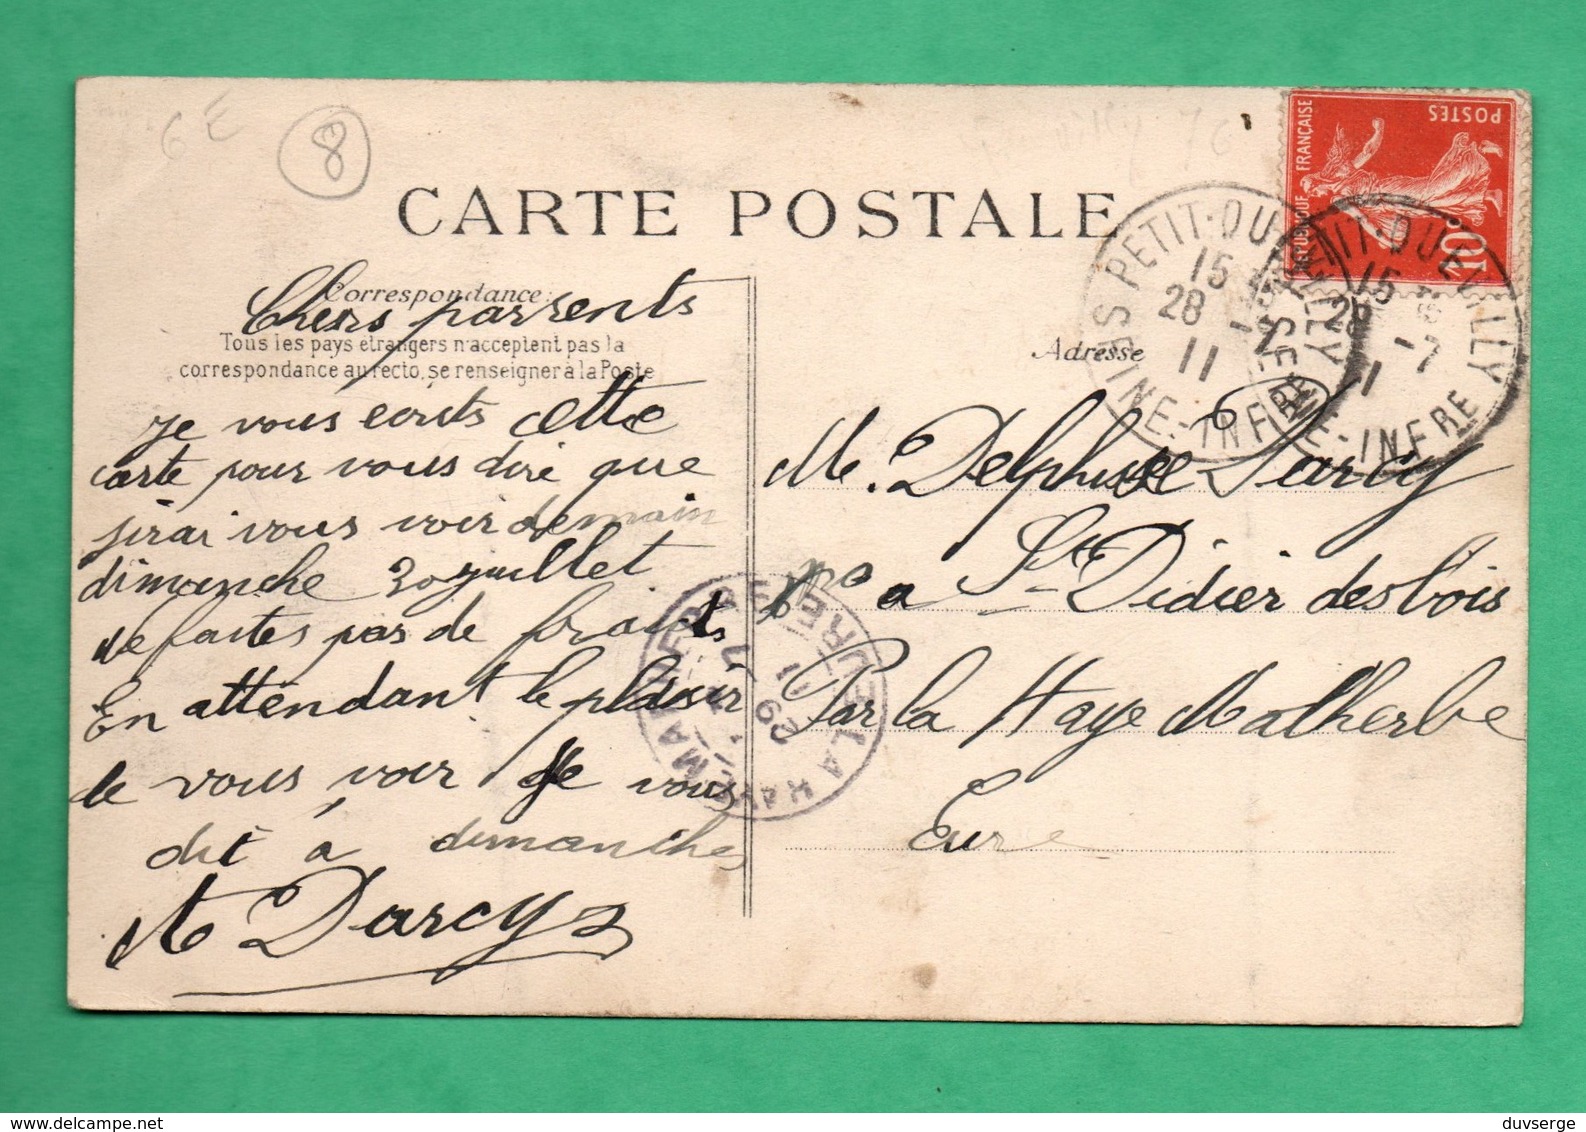 6 E
8
CARTE POSTALE
Correspondance
Tous les pays étrangers n'acceptent pas la
correspondance au recto, se renseigner à la Poste
Chers parrents
Je vous ecrits cette
carte pour vous dire que
jirai vous voir demain
dimanche 30 juillet
ne faites pas de
En attendant le plaisir
de vous voir Je vous
dit à dimanche
A Darcy
Adresse
M. Delphise Darcy
a St Didier des bois
Par la Haye Malherbe
Eure
RÉPUBLIQUE FRANÇAISE
POSTES
10c
PETIT-QUEVILLY
15
28 -7
11
SEINE-INFRE
PETIT-QUEVILLY
15
28 -7
11
SEINE-INFRE
LA HAYE MALHERBE
29 7
11
EURE
duvserge